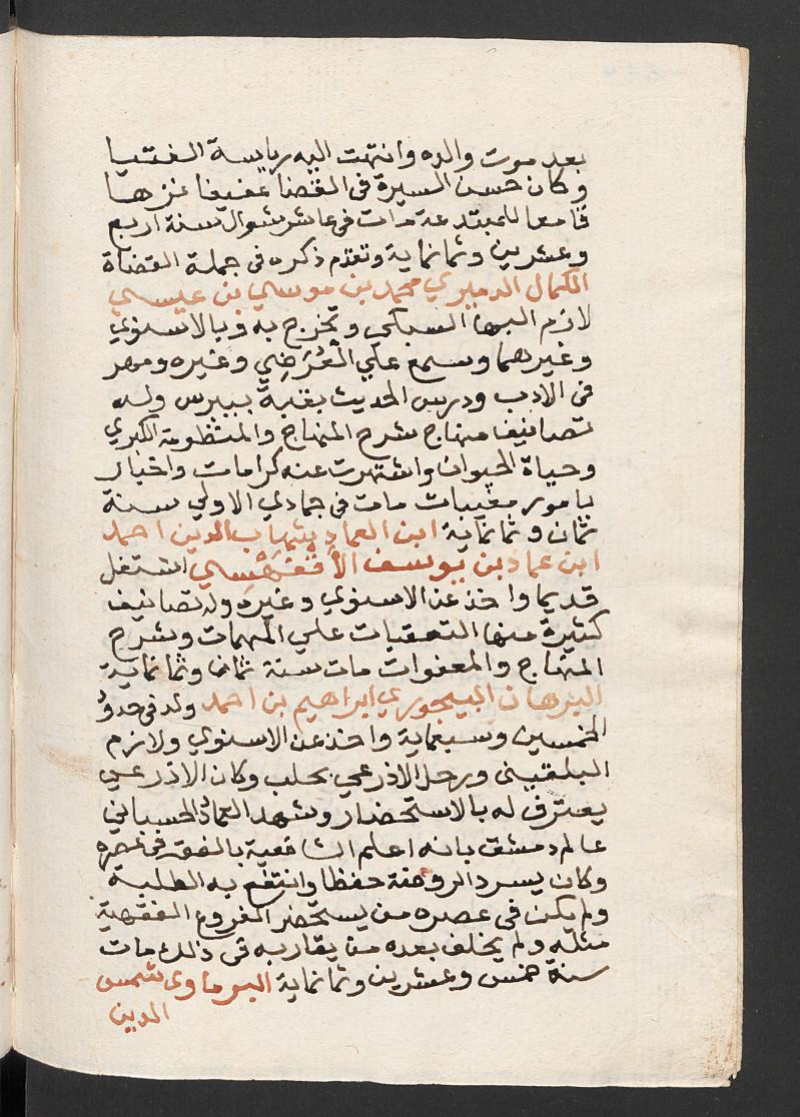 بعد موت والده وانتهت اليه رياسة الفتيا
وكان حسن السيرة في القضا عفيفا نزها
قامعا للمبتدعة مات في عاشر شوال سنة اربع
وعشرين وثمانماية وتقدم ذكره في جملة القضاة
الكمال الدميري محمد بن موسي بن عيسي
لازم البها السبكي وتخرج به وبالاسنوي
وغيرهما وسمع علي العُرَضِي وغيره ومهر
في الادب ودرس الحديث بقبة بيبرس وله
تصانيف منها شرح المنهاج والمنظومة الكبري
وحياة الحيوان واشتهرت عنه كرامات واخبار
بامور مغيبات مات في جمادي الاولي سنة
ثمان وثمانماية ابن العماد شهاب الدين احمد
ابن عماد بن يوسف الأَقْفَهْسي اشتغل
قديما واخذ عن الاسنوي وغيره وله تصانيف
كثيرة منها التعقبات علي المهمات وشرح
المنهاج والمعفوات مات سنة ثمان وثمانماية
البرهان البيجوري ابراهيم بن احمد ولد في حدودُ
الخمسين وسبعماية واخذ عن الاسنوي ولازم
البلقيني ورحل الاذرعي بحلب وكان الاذرعي
يعترف له بالاستحضار وشهد العمادُ الحسباني
عالم دمشق بانه اعلم الشافعية بالفقه في عصره
وكان يسرد الروضة حفظا وانتفع به الطلبة
ولم يكن في عصره من يستحضر الفروع الفقهية
مثله ولم يخلف بعده من يقاربه في ذلك مات
سنة خمس وعشرين وثمانماية البرماوي شمس
الدين